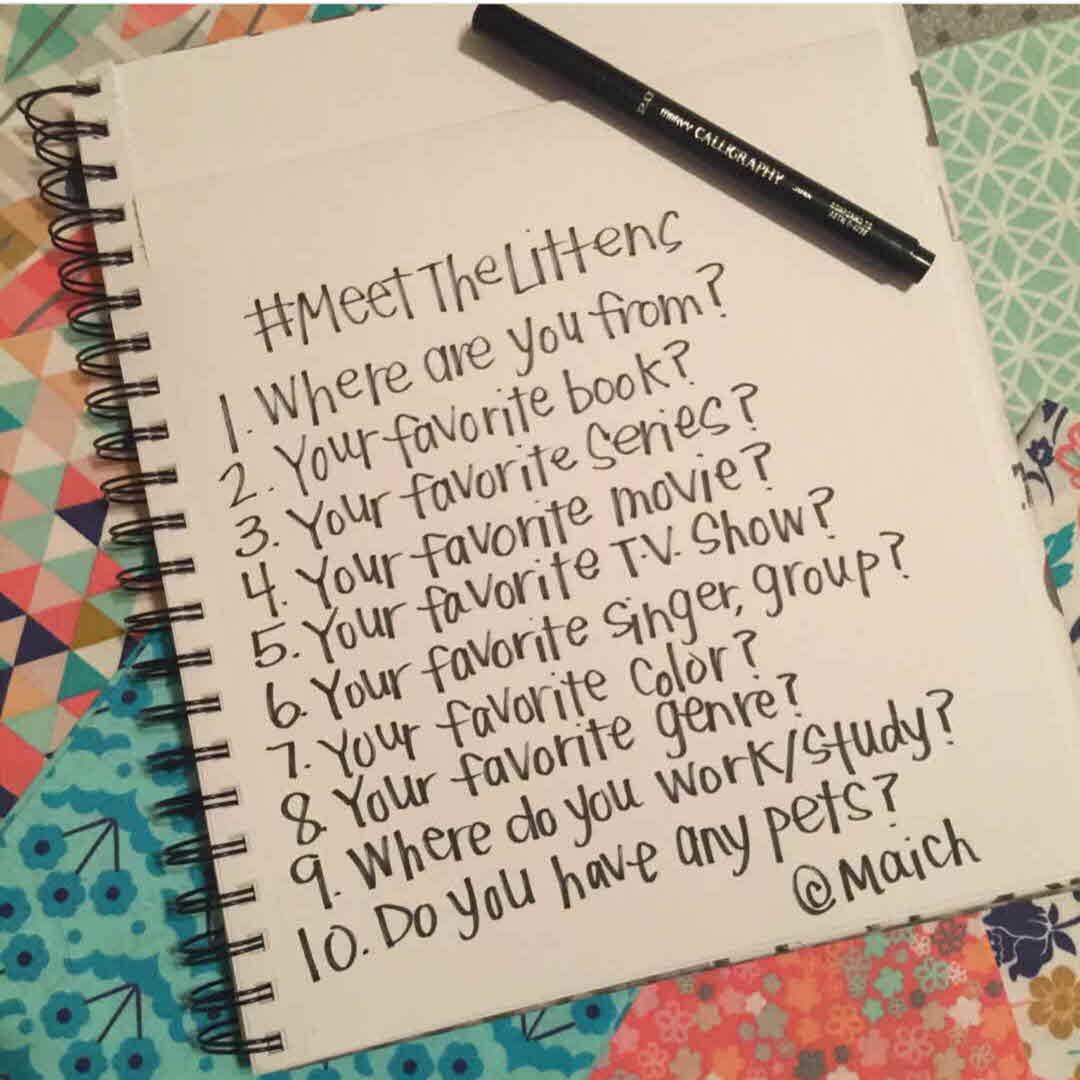 marvy CALLIGRAPHY
#MeetTheLittens
1. Where are you from?
2. Your favorite book?
3. Your favorite series?
4. Your favorite movie?
5. Your favorite T.V. Show?
6. Your favorite singer, group?
7. Your favorite Color?
8. Your favorite genre?
9. Where do you work/study?
10. Do you have any pets?
@Maich